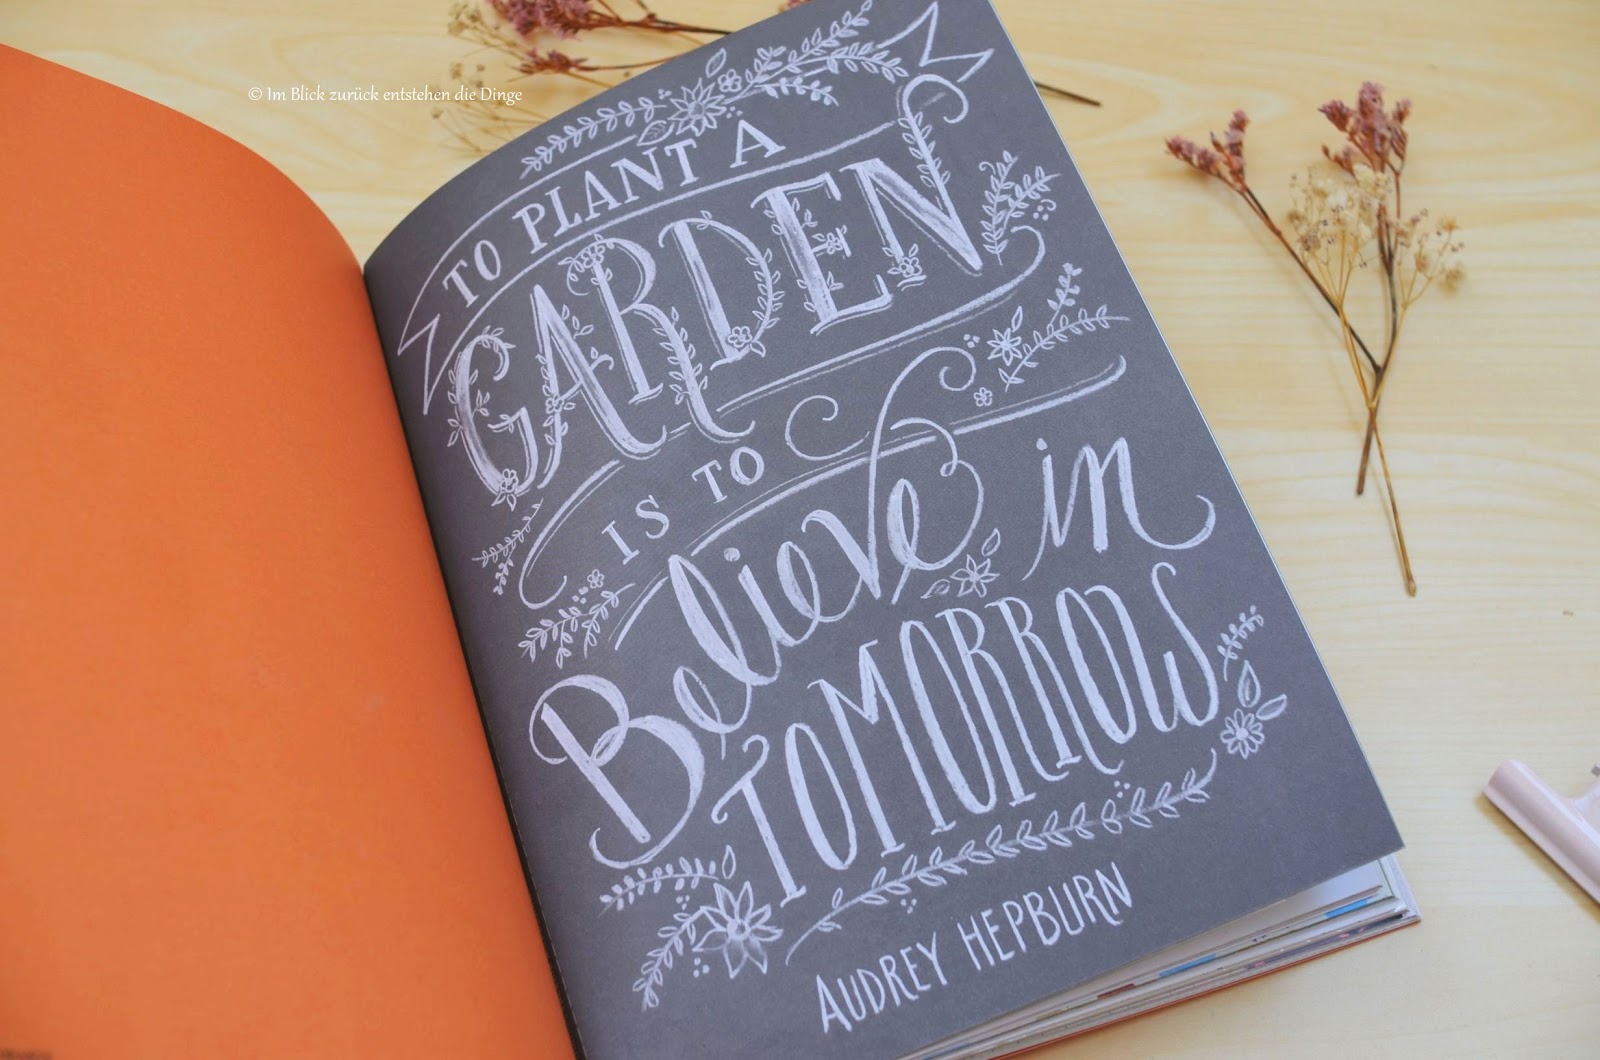 © Im Blick zurück entstehen die Dinge
TO PLANT A
GARDEN
IS TO
Believe in
TOMORROW
AUDREY HEPBURN